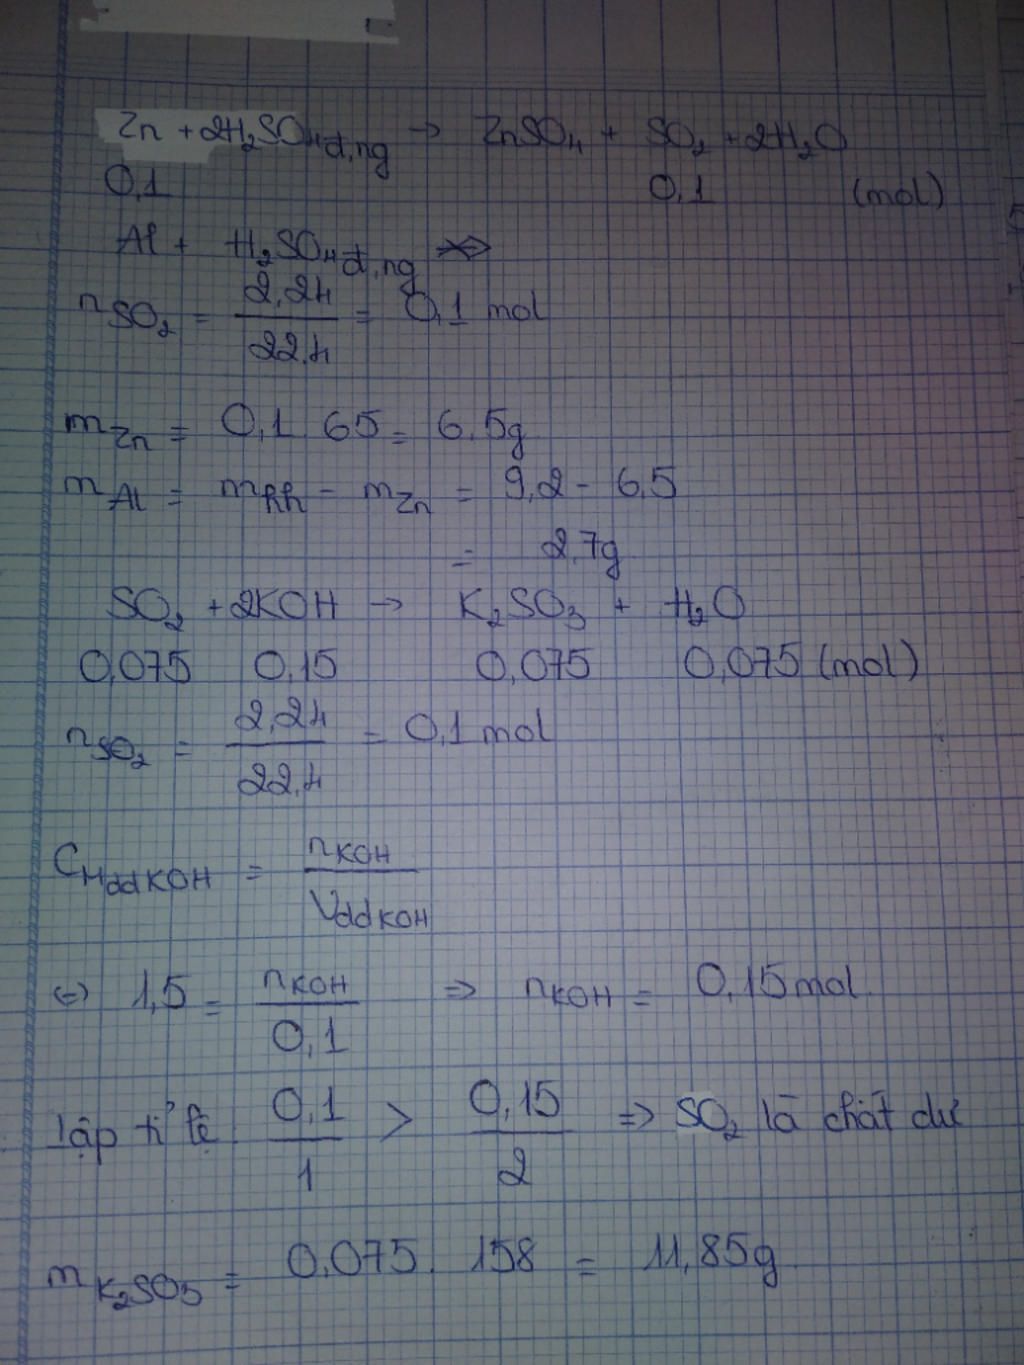 Zn + 2H₂SO₄đ,ng → ZnSO₄ + SO₂ + 2H₂O
0,1 0,1 (mol)
Al + H₂SO₄đ,ng ↛
nSO₂ = 2,24/22,4 = 0,1 mol
mZn = 0,1. 65 = 6,5g
mAl = mhh - mZn = 9,2 - 6,5
= 2,7g
SO₂ + 2KOH → K₂SO₃ + H₂O
0,075 0,15 0,075 0,075 (mol)
nSO₂ = 2,24/22,4 = 0,1 mol
CMddKOH = nKOH/VddKOH
⇔ 1,5 = nKOH/0,1 ⇒ nKOH = 0,15 mol.
lập tỉ lệ 0,1/1 > 0,15/2 ⇒ SO₂ là chất dư
mK₂SO₃ = 0,075. 158 = 11,85g